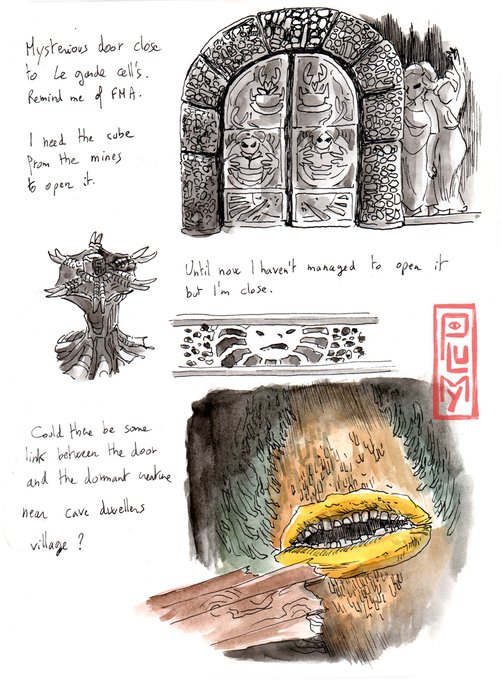 Mysterious door close
to Le garde cell's.
Remind me of FMA.
I need the cube
from the mines
to open it.
Until now I haven't managed to open it
but I'm close.
PLUMY
Could there be some
link between the door
and the dormant creature
near cave dwellers
village ?